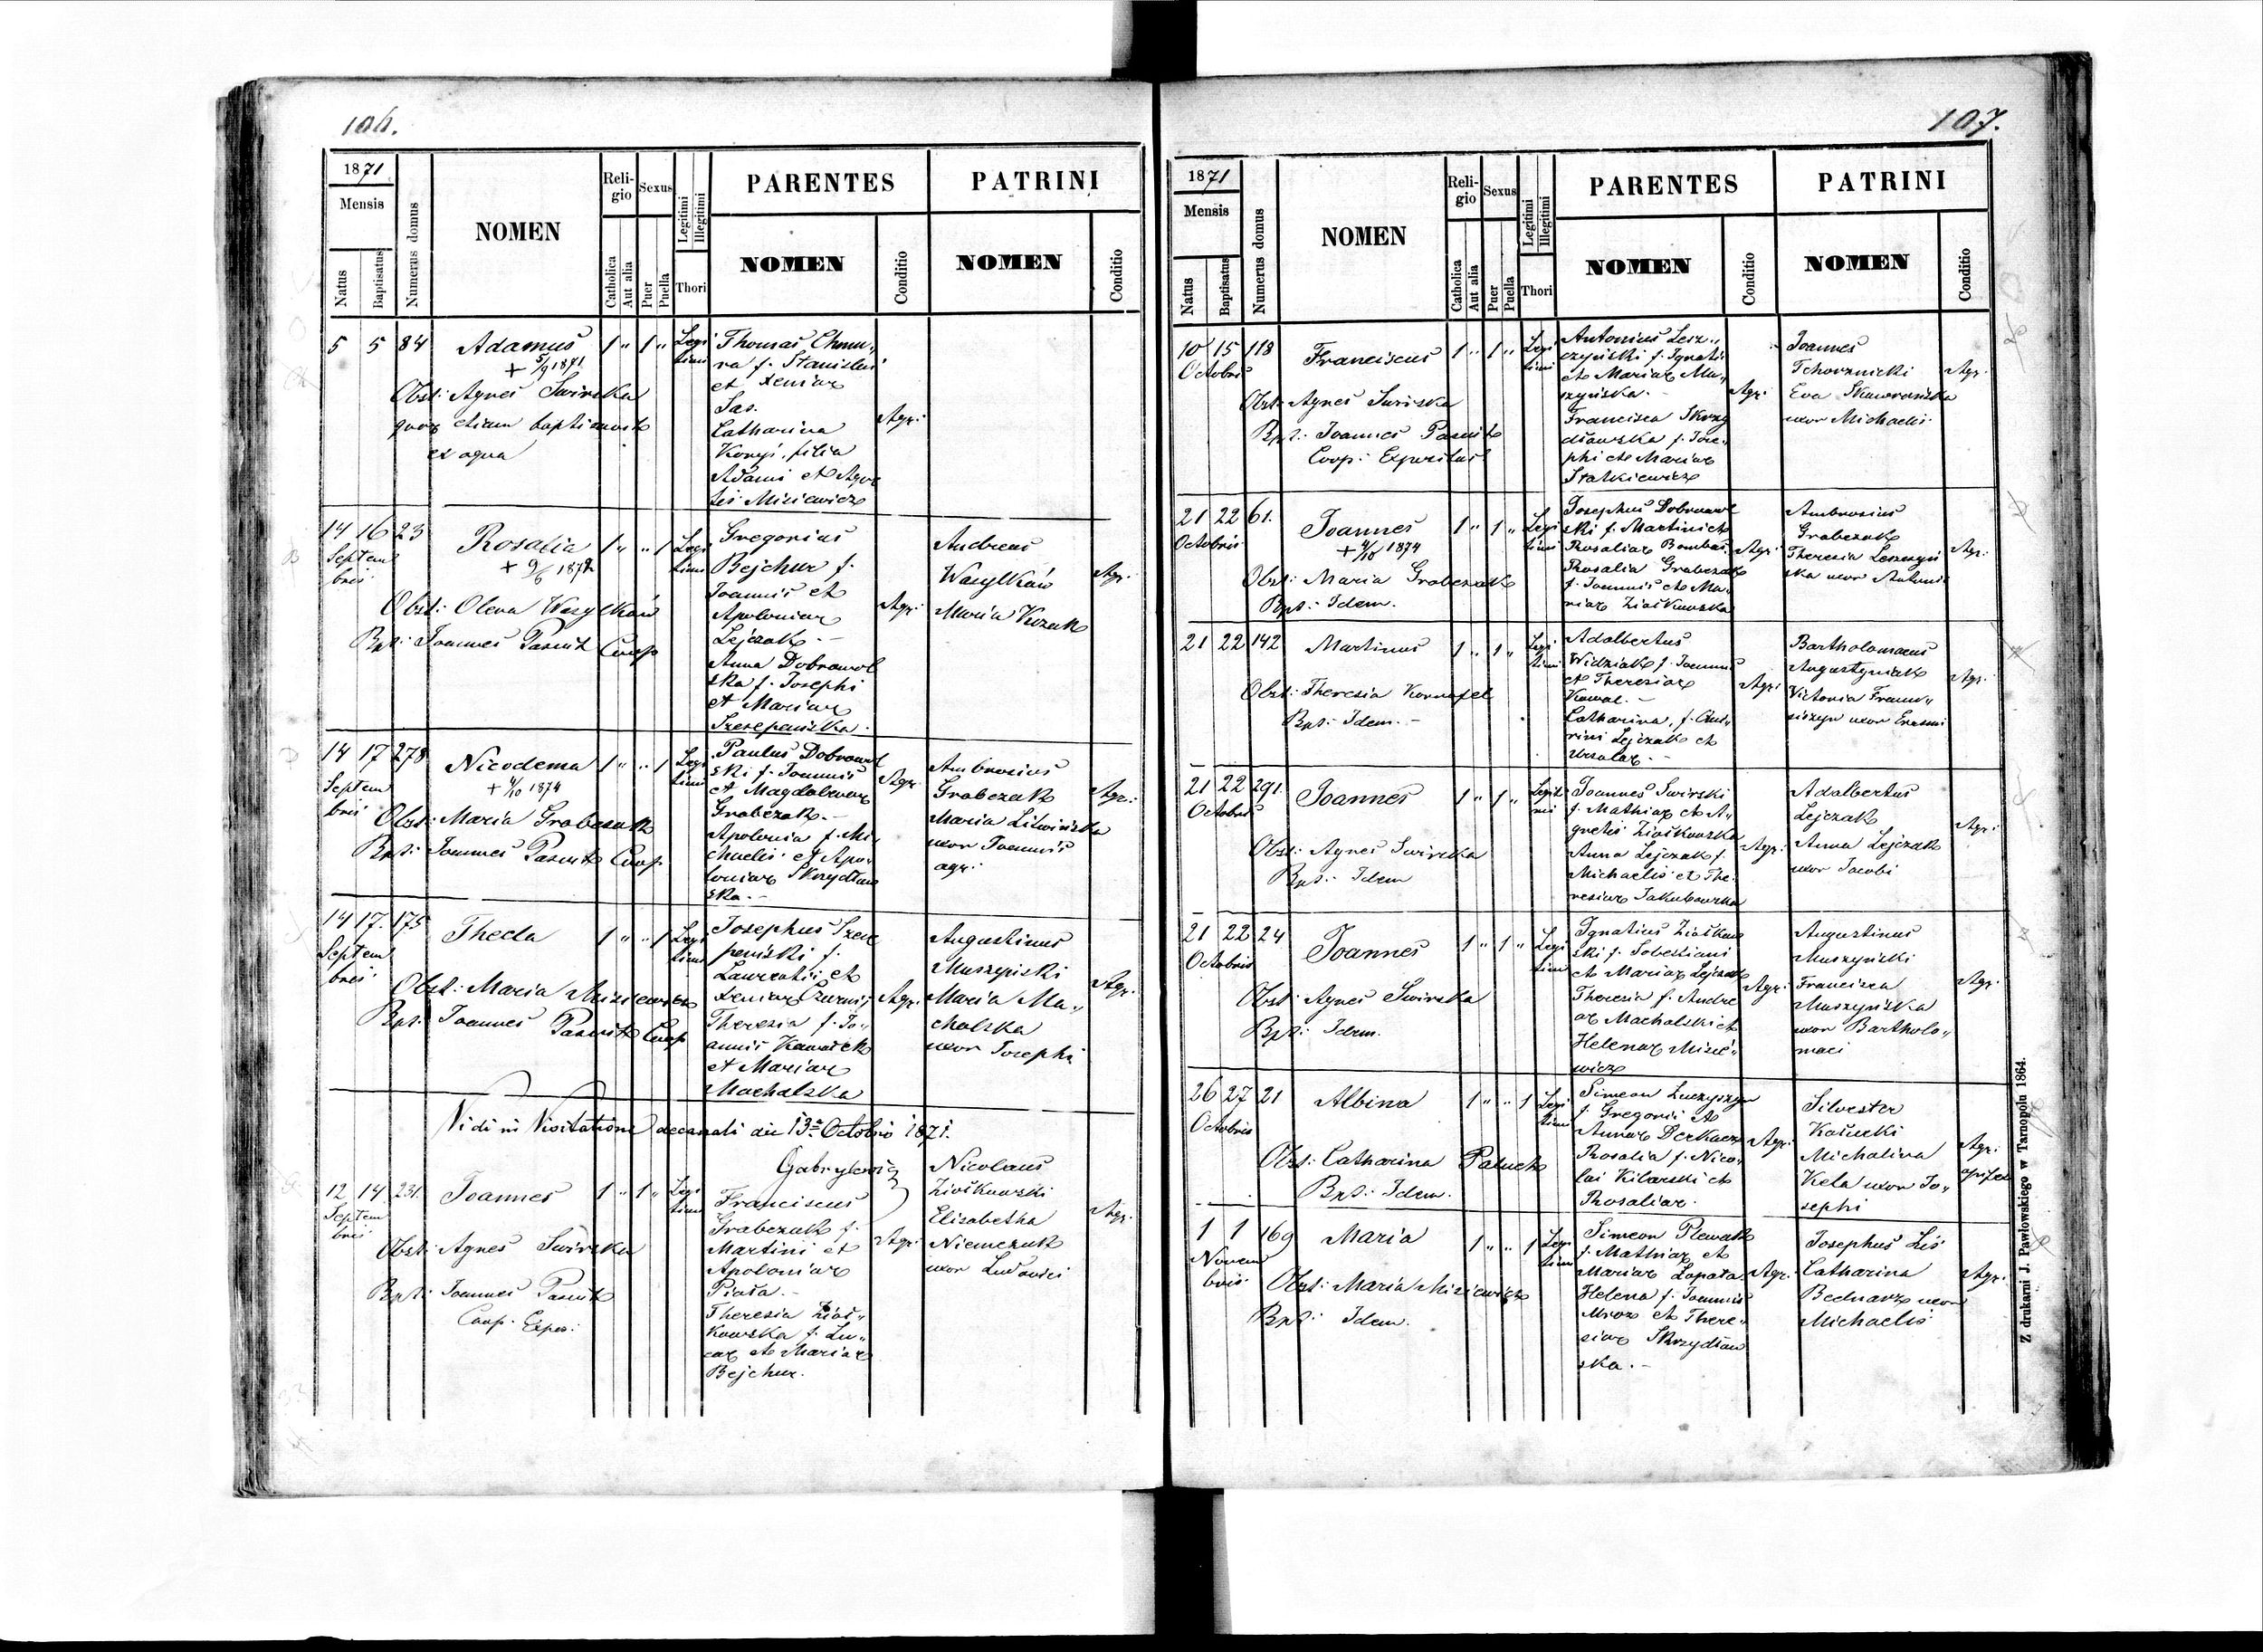 106.
1871
Mensis
Natus
Baptisatus
Numerus domus
NOMEN
Religio
Catholica
Aut alia
Sexus
Puer
Puella
Legitimi
Illegitimi
Thori
PARENTES
NOMEN
Conditio
PATRINI
NOMEN
Conditio
5 5 84 Adamus 1 " 1 " Legi
timi
+ 5/9 1871
Obst: Agnes Swirska
quae etiam baptisavit
ex aqua
Thomas Chmu„
ra f. Stanislai
et Xeniae
Sas.
Catharina
Konyś, filia
Adami et Agne
tis Misiewicz
Agr:
14 16 23 Rosalia 1 " " 1 Legi
timi
Septem
bris
Obst: Olena Wasylków
Bpt: Joannes Pasuit Coop
Gregorius
Bejchur f.
Joannis et
Apoloniae
Lejczak.
Anna Dobrowol
ska f. Josephi
et Mariae
Szczepańska.
Agr:
Andreas
Wasylków
Maria Kozak
Agr.
14 17 278 Nicodema 1 " " 1 Legi
timi
+ 4/10 1874
Septem
bris
Obst: Maria Grabczak
Bpt: Joannes Pasuit Coop.
Paulus Dobrowol
ski f. Joannis
et Magdalenae
Grabczak.
Apolonia f. Mi„
chaelis et Apo„
loniae Skrzydłow
ska.
Agr.
Ambrosius
Grabczak
Maria Litwińska
uxor Joannis
agr:
Agr:
14 17. 175 Thecla 1 " " 1 Legi
timi
Septem
bris
Obst: Maria Misiewicz
Bpt: Joannes Pasuit Coop
Josephus Szcze
pański f.
Laurentii et
Xeniae
Theresia f. Jo„
annis
et Mariae
Machalska
Agr.
Augustinus
Muszyński
Maria Ma„
chalska
uxor Josephi
Agr.
Vidi in Visitatione decanali die 13a Octobris 1871.
12 14 231. Joannes 1 " 1 " Legi
timi
Septem
bris
Obst: Agnes Swirska
Bpt: Joannes Pasuit
Coop. Expos:
Franciscus
Grabczak f.
Martini et
Apoloniae
Theresia Zioł„
kowska f. Lu„
cae et Mariae
Bejchur.
Agr:
Nicolaus
Ziołkowski
Elisabetha
Niemczuk
uxor Ludovici
Agr.
107.
1871
Mensis
Natus
Baptisatus
Numerus domus
NOMEN
Religio
Catholica
Aut alia
Sexus
Puer
Puella
Legitimi
Illegitimi
Thori
PARENTES
NOMEN
Conditio
PATRINI
NOMEN
Conditio
10 15 118 Franciscus 1 " 1 " Legi
timi
Octobris
Obst: Agnes Swirska
Bpt: Joannes Pasuit
Coop: Expositus
Antonius Lesz„
czyński f. Ignatii
et Mariae Mu„
szyńska.
Francisca Skrzy
dłowska f. Jose„
phi et Mariae
Statkiewicz
Agr:
Joannes
Tchorznicki
Eva Skowrońska
uxor Michaelis
Agr.
21 22 61. Joannes 1 " 1 " Legi
timi
+ 4/10 1874
Octobris
Obst: Maria Grabczak
Bpt: Idem.
Josephus Dobrowol
ski f. Martini et
Rosaliae Bombas.
Rosalia Grabczak
f. Joannis et Ma„
riae Ziołkowska
Agr:
Ambrosius
Grabczak
Theresia Leszczyń
ska uxor Antonii
Agr:
21 22 142 Martinus 1 " 1 " Legi
timi
Obst: Theresia Kornafel
Bpt: Idem.
Adalbertus
Widziak f. Joannis
et Theresiae
Kowal.
Catharina, f.
Lejczak et
Ursulae.
Agr:
Bartholomaeus
Augustyniak
Victoria Franu„
siszyn uxor Erasmi
Agr.
21 22 291. Joannes 1 " 1 " Legiti
mi
Octobris
Obst: Agnes Swirska
Bpt: Idem
Joannes Swirski
f. Mathiae et A„
gnetis Ziołkowska
Anna Lejczak f.
Michaelis et The„
resiae Jakubowska
Agr:
Adalbertus
Lejczak
Anna Lejczak
uxor Jacobi
Agr:
21 22 24 Joannes 1 " 1 " Legi
timi
Octobris
Obst: Agnes Swirska
Bpt: Idem.
Ignatius Ziołkow
ski f. Sebastiani
et Mariae Lejczak
Theresia f. Andre
ae Machalski et
Helenae Misie„
wicz
Agr:
Augustinus
Muszyński
Francisca
Muszyńska
uxor Bartholo„
maei
Agr:
26 27 21 Albina 1 " " 1 Legi
timi
Octobris
Obst: Catharina Paluch
Bpt: Idem.
Simeon Łuczyszyn
f. Gregorii et
Annae Derkacz
Rosalia f. Nico„
lai Kilarski et
Rosaliae.
Agr:
Silvester
Kałucki
Michalina
Kela uxor Jo„
sephi
Agr:
1 1 169 Maria 1 " " 1 Legi
timi
Novem
bris
Obst: Maria Misiewicz
Bpt: Idem.
Simeon Plewak
f. Mathiae et
Mariae Łopata.
Helena f. Joannis
Mroz et There„
siae Skrzydłow
ska.
Agr:
Josephus Liś
Catharina
Bednarz uxor
Michaelis
Agr:
Z drukarni J. Pawłowskiego w Tarnopolu 1864.